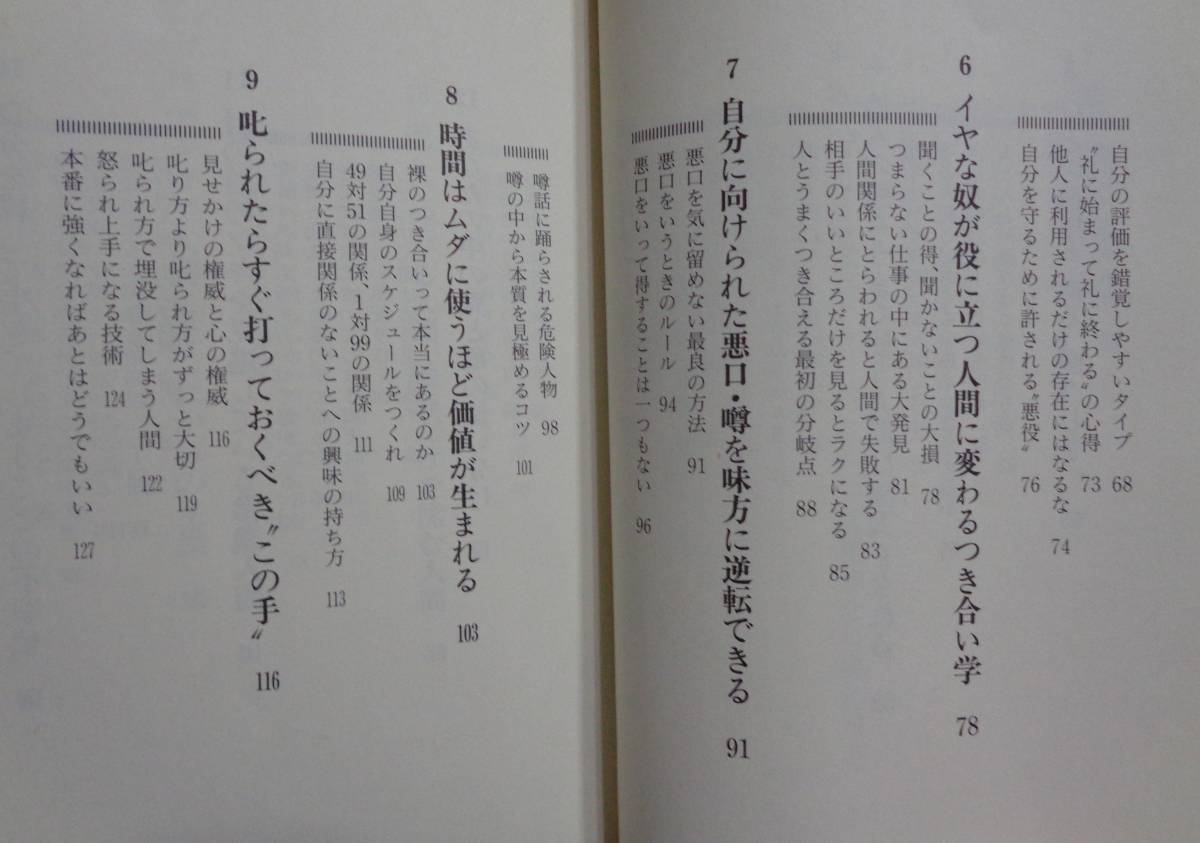 自分の評価を錯覚しやすいタイプ 68
〝礼に始まって礼に終わる〟の心得 73
他人に利用されるだけの存在にはなるな 74
自分を守るために許される〝悪役〟 76
6 イヤな奴が役に立つ人間に変わるつき合い学 78
聞くことの得、聞かないことの大損 78
つまらない仕事の中にある大発見 81
人間関係にとらわれると人間で失敗する 83
相手のいいところだけを見るとラクになる 85
人とうまくつき合える最初の分岐点 88
7 自分に向けられた悪口・噂を味方に逆転できる 91
悪口を気に留めない最良の方法 91
悪口をいうときのルール 94
悪口をいって得することは一つもない 96
噂話に踊らされる危険人物 98
噂の中から本質を見極めるコツ 101
8 時間はムダに使うほど価値が生まれる 103
裸のつき合いって本当にあるのか 103
自分自身のスケジュールをつくれ 109
49対51の関係、1対99の関係 111
自分に直接関係のないことへの興味の持ち方 113
9 叱られたらすぐ打っておくべき〝この手〟 116
見せかけの権威と心の権威 116
叱り方より叱られ方がずっと大切 119
叱られ方で埋没してしまう人間 122
怒られ上手になる技術 124
本番に強くなればあとはどうでもいい 127